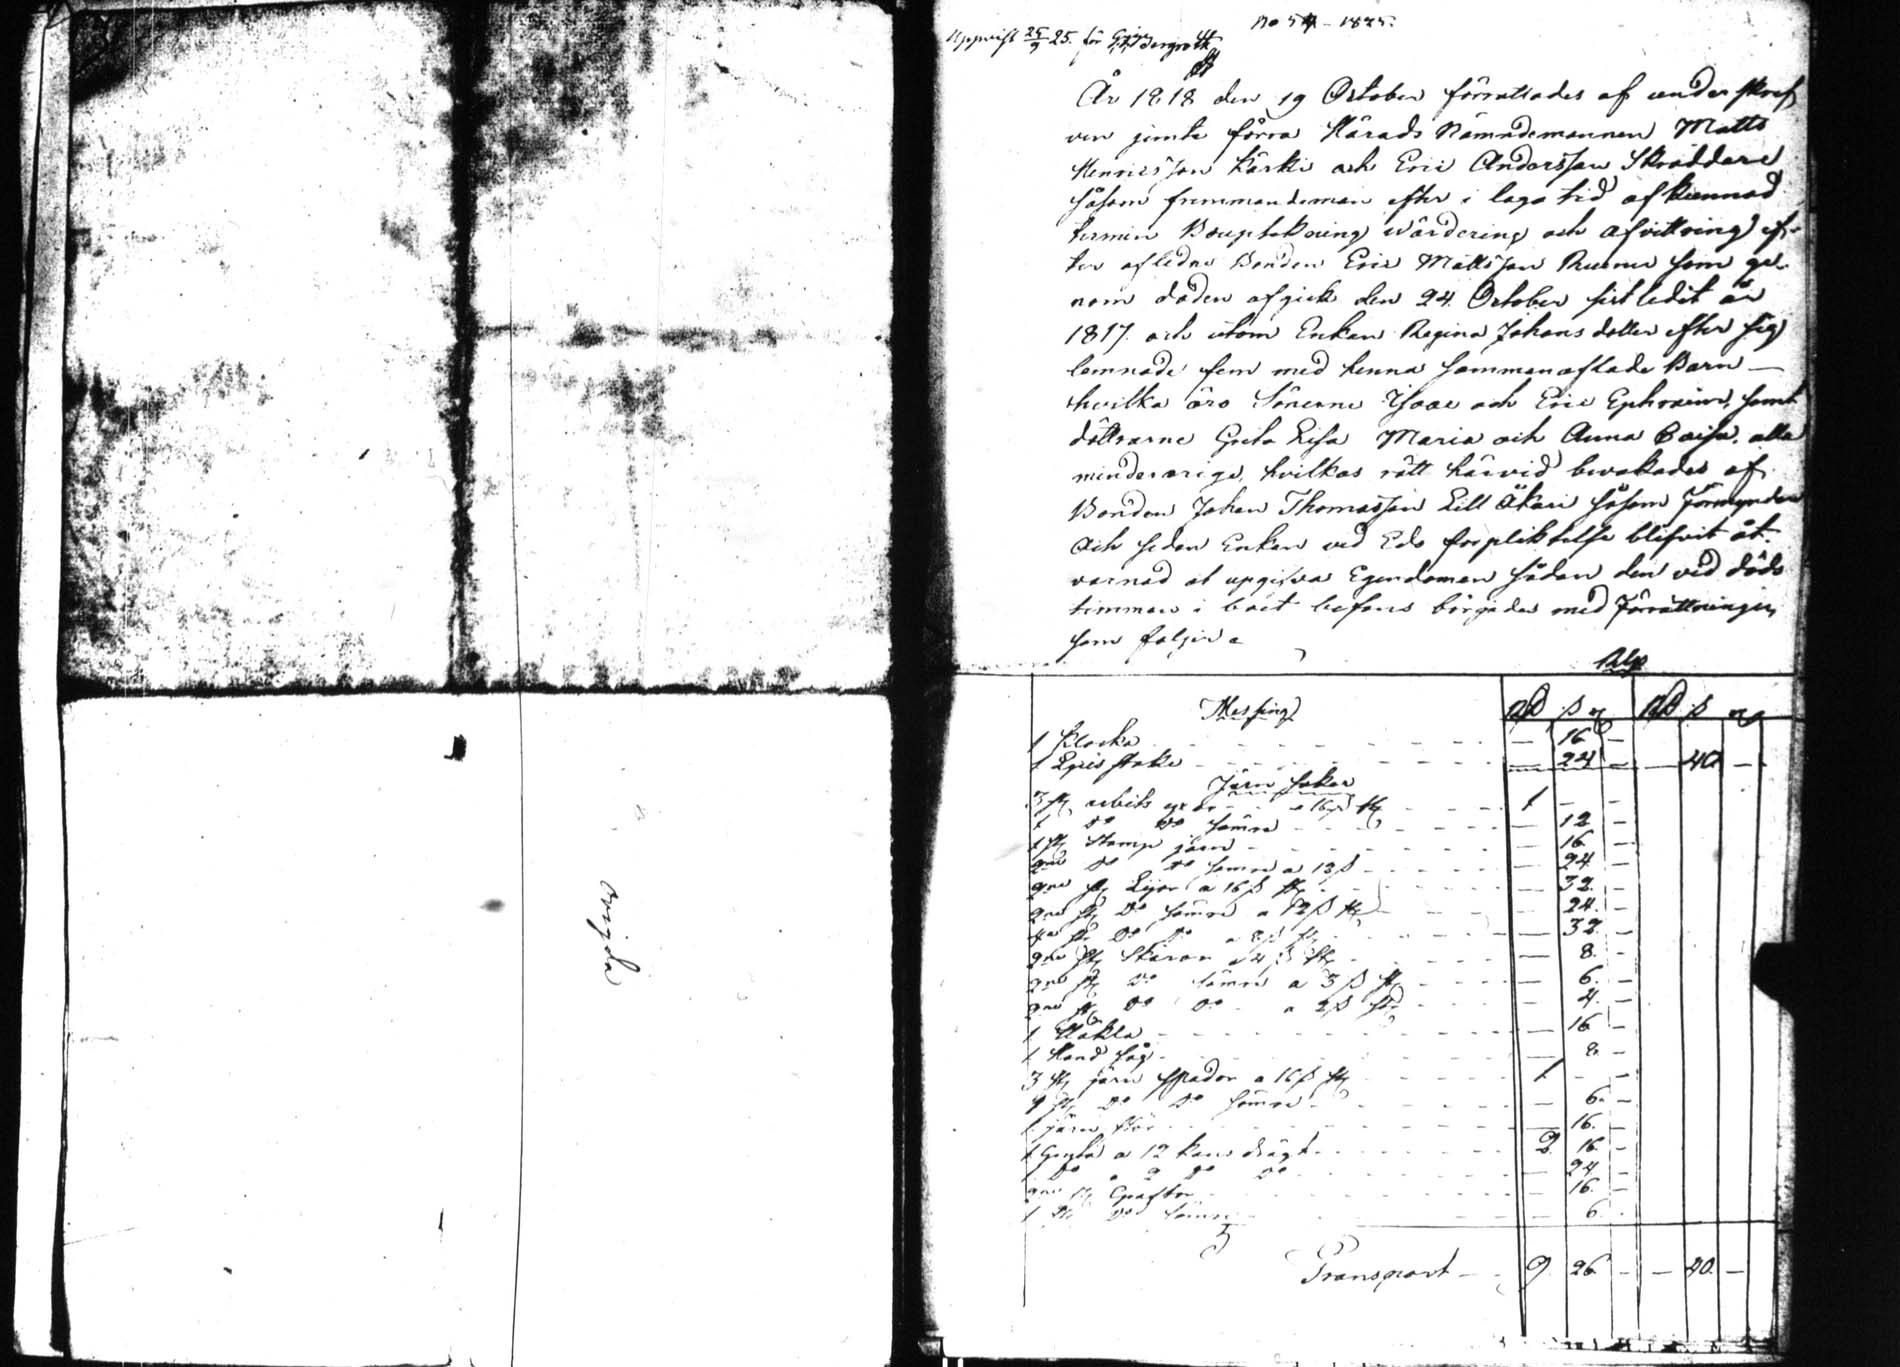 No 54 - 1825.
25/9 25. för
År 1818 den 19 October förrattades af underskref
ven jemte förra Härads Nämndemannen Matts
Henricsson Kärki och Eric Andersson Skräddare
såsom fremmande män efter i laga tid af kiennad
termin Bouptekning wärdering och afvittring ef-
ter afledne Bonden Eric Mattsson som ge-
nom döden afgick den 24 October sist ledit år
1817. och utom Enkan Regina Johansdotter efter sig
lemnade fem med henna sammanaflade Barn
hvilka äro Sönerne Isaac och Eric Ephraim, samt
döttrarne Greta Lisa Maria och Anna Caisa, alla
minderårige, hvilkas rätt härvid bevakades af
Bonden Johan Thomasson Lill såsom Förmyndare
Och sedan Enkan ved Eds forpliktelse blifvit åt-
varnad at upgifva Egendomen sådan den vid döds
timman i boet befans börjades med Förrättningen
som följer
Messing
1 Klocka - 16 -
1 Lius stake - 24 - - 40 -
Järn saker
3 st arbets yxor a 16 β st 1 - -
1 Do Do sämre - 12 -
1 st Stamp järn - 16 -
2ne Do Do sämre a 12 β - 24 -
2ne st Lijor a 16 β st - 32 -
2ne st Do sämre a 12 β st - 24 -
4a st Do Do a 8 β st - 32 -
2ne st Skäror a 4 β st - 8 -
2ne st Do sämre a 3 β st - 6 -
2ne st Do Do a 2 β st - 4 -
1 Häkla - 16 -
1 Hand såg - 8 -
3 st järn spador a 16 β st 1 - -
1 st Do Do sämre - 6 -
1 järn stör - 16 -
1 Gryta a 12 kans drägt 2 16 -
1 Do a 2 Do Do - 24 -
2ne st - 16 -
1 st Do sämre - 6 -
Transport 9 26 - - 40 -